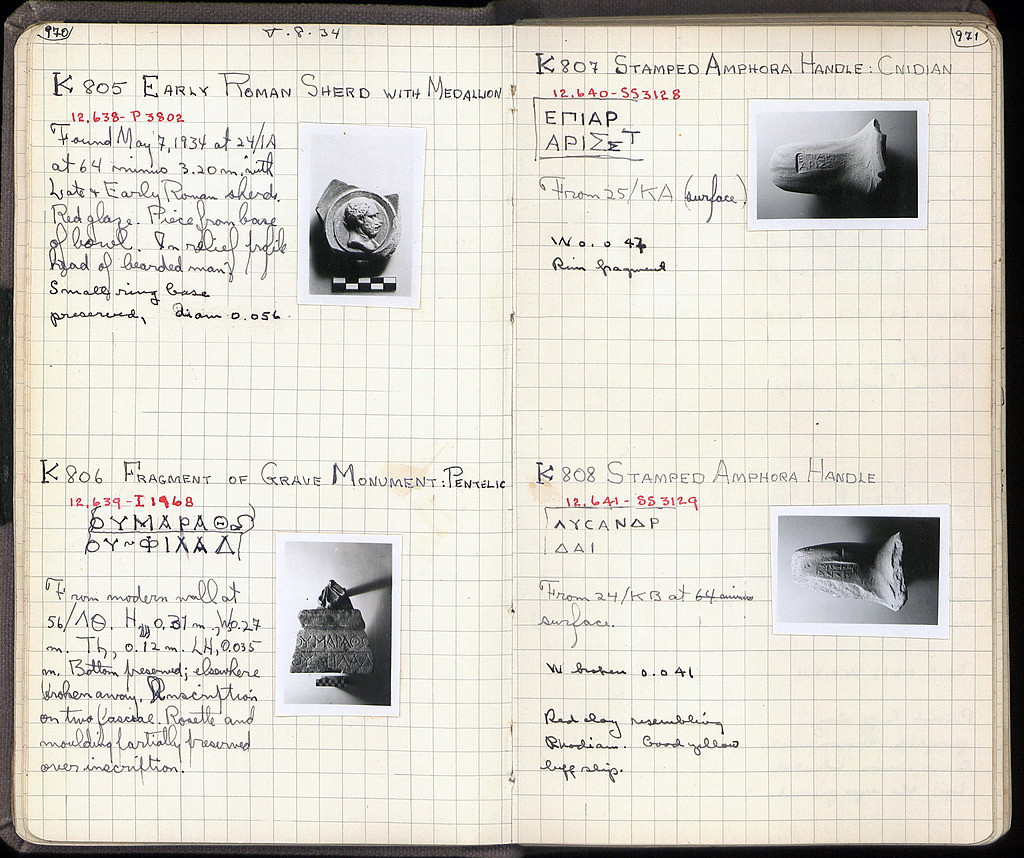 970
V.8.34
K 805 EARLY ROMAN SHERD WITH MEDALLION
12.638-P3802
Found May 7, 1934 at 24/IA
at 64 minus 3.20 m, with
Late & Early Roman sherds.
Red glaze. Piece from base
of bowl. In relief profile
head of bearded man?
Small ring base
preserved, diam 0.056
K 806 FRAGMENT OF GRAVE MONUMENT: PENTELIC
12.639-I 1968
ΟΥΜΑΡΑΘΩ
ΟΥ~ΦΙΛΑΔ
From modern wall at
56/ΛΘ. H, 0.31 m, W, 0.27
m. Th, 0.12 m. LH, 0.035
m. Bottom preserved; elsewhere
broken away. Inscription
on two fasciae. Rosette and
moulding partially preserved
over inscription.
971
K 807 STAMPED AMPHORA HANDLE: CNIDIAN
12.640-SS3128
ΕΠΙΑΡ
ΑΡΙΣΣΤ
From 25/KA (surface).
W 0.047
Rim fragment
K 808 STAMPED AMPHORA HANDLE
12.641-SS3129
ΛΥCΑΝΔΡ
ΔΑΙ
From 24/KB at 64 minus
surface.
W broken 0.041
Red clay resembling
Rhodian. Good yellow
buff slip.